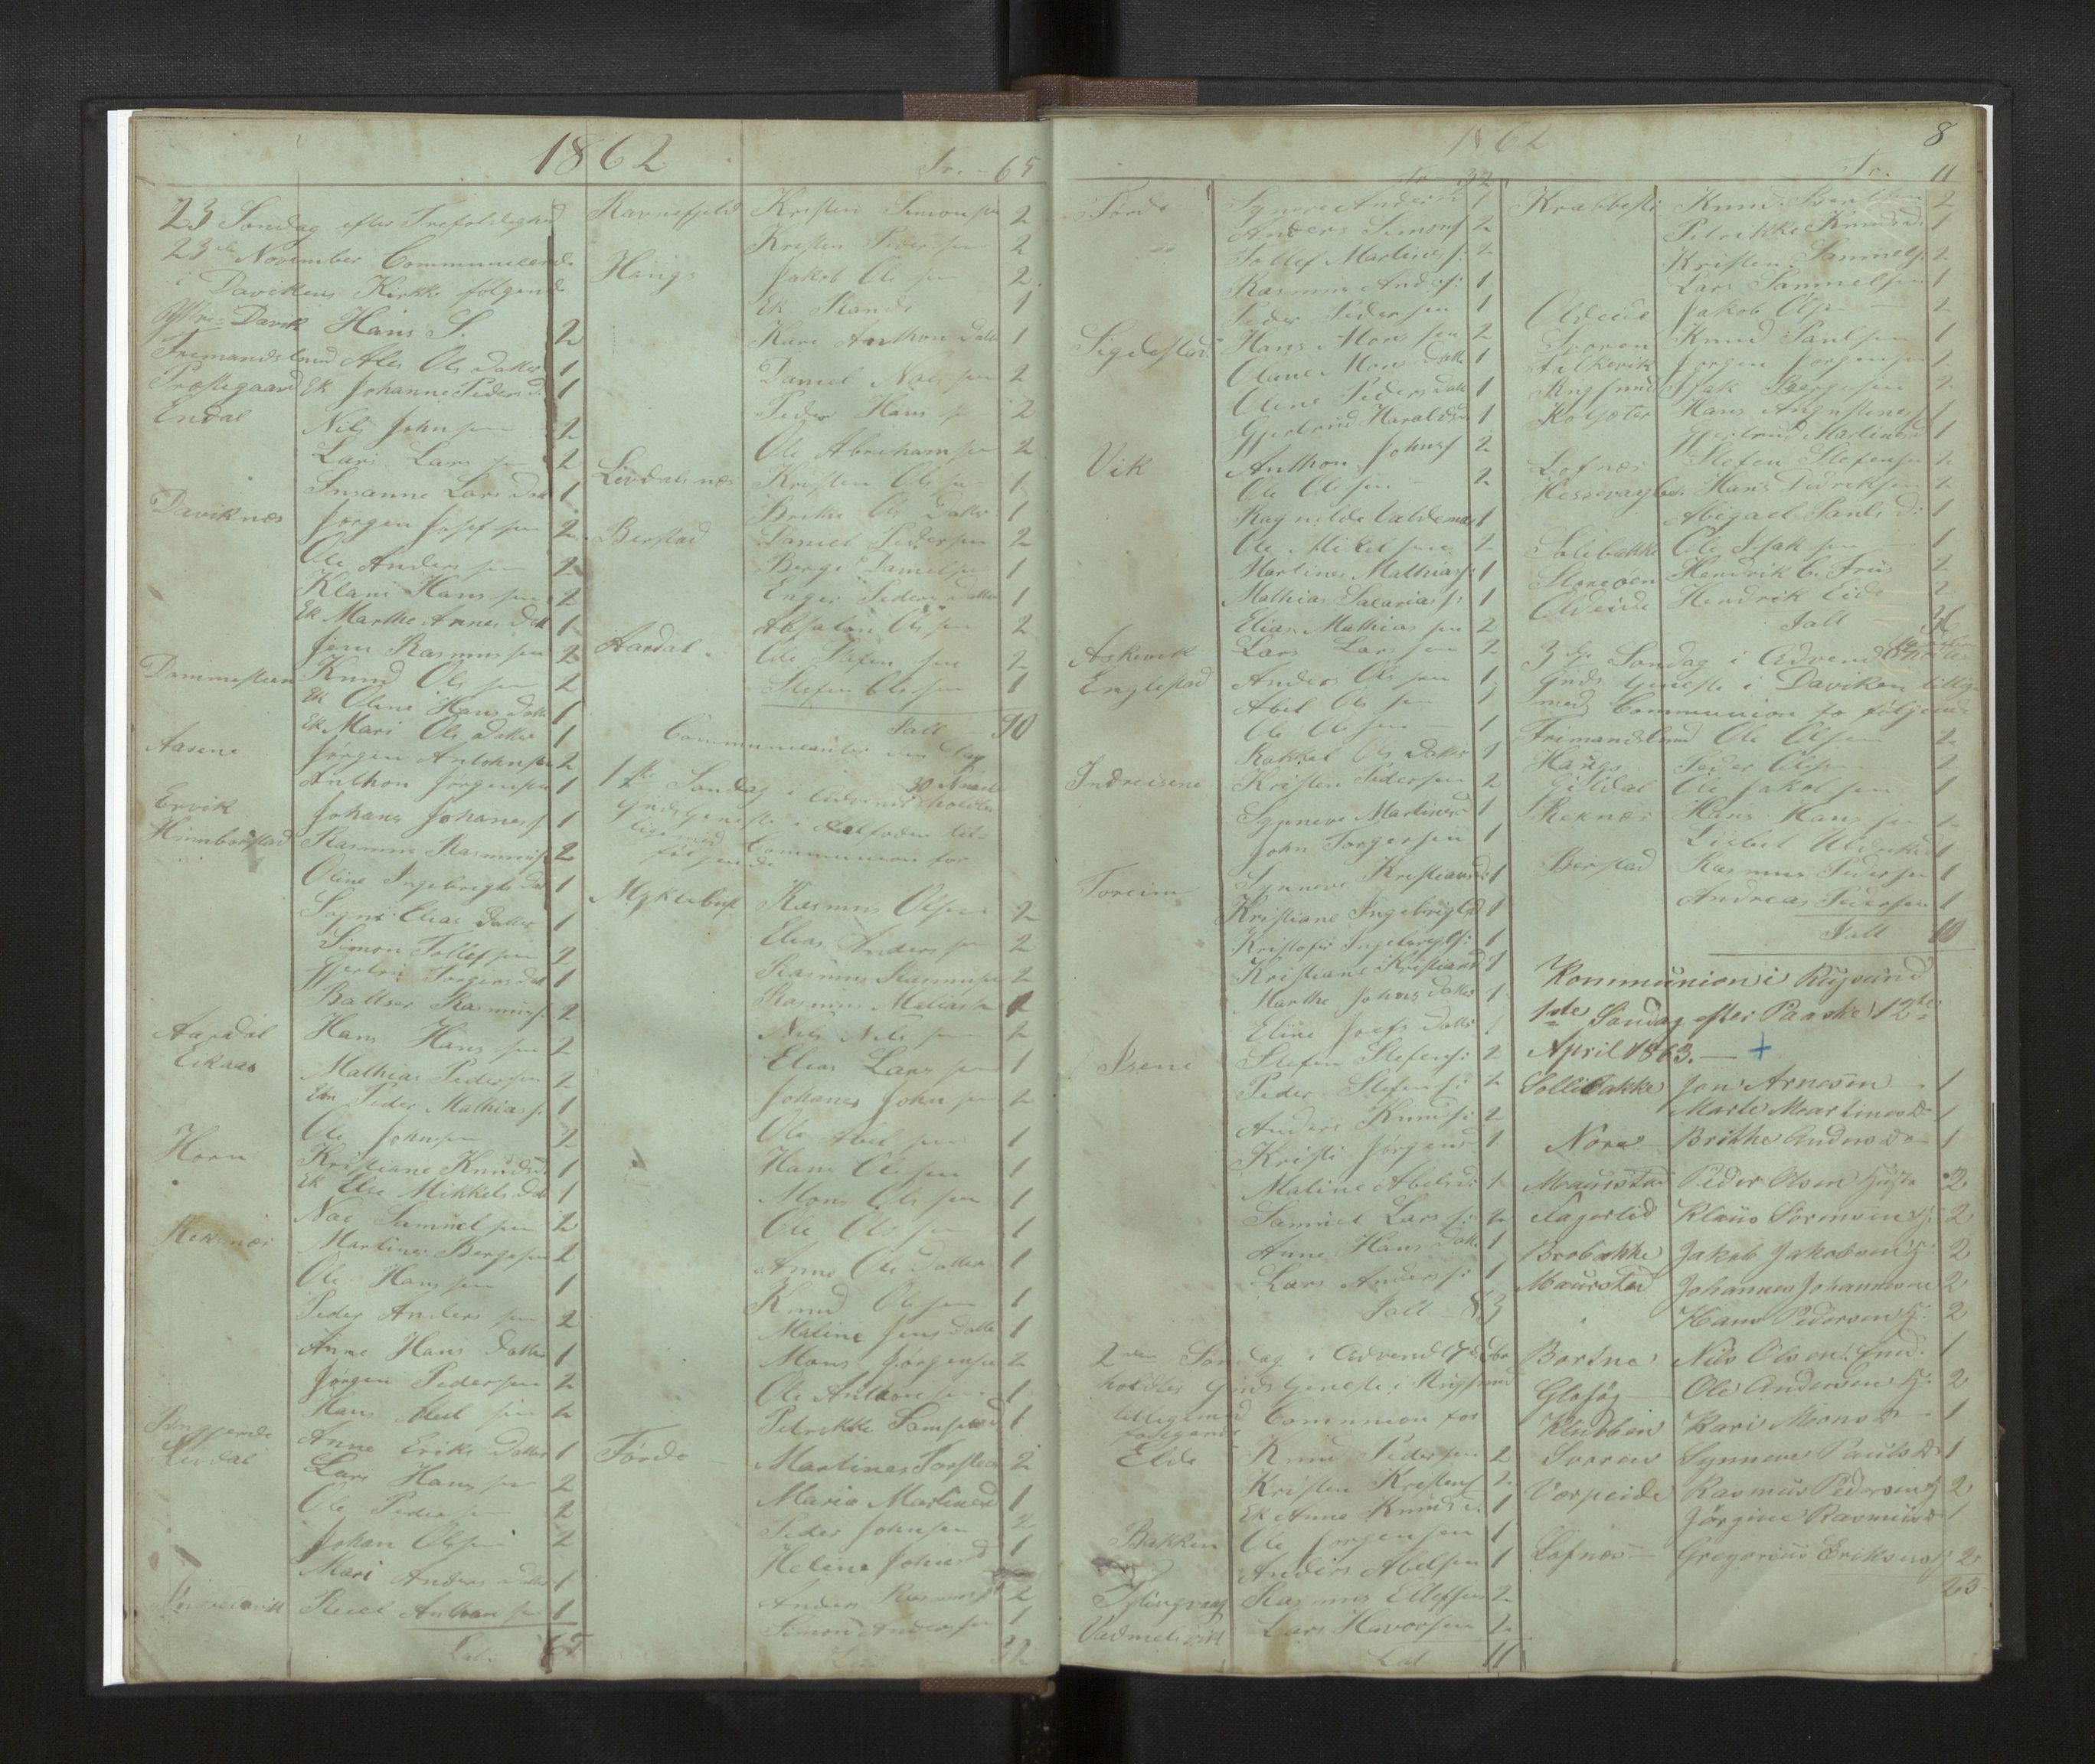 1862
Tr. - 65
23 Søndag efter Trefoldighed
23de November Communicerede
i Davikens Kirke følgende
Yttre-Davik Hans S. 2
Fremandslund Ales Ols datter 1
Præstegaard Ek Johanne Peders d. 1
Endal Nils Johnsen 2
Lars Lars sen 2
Susanne Lars dat 1
Daviknæs Jørgen Josef sen 2
Ole Anders sen 2
Klaus Hans sen 2
Ek Marthe Annes Dat 1
Jens Rasmus sen 2
Dommesteen Knud Ols sen 2
Ek Oline Hans datter 1
Ek Mari Ols datter 1
Aasene Jørgen Antohn sen 2
Anthon Jørgensen 1
Ervik Johanes Johanes s 1
Humborstad Rasmus Rasmus s 2
Oline Ingebrigts dat 1
Elias datter 1
Simon Tollefsen 2
Torgers dat 1
Baltser Rasmus s 2
Aardal Hans Hans sen 2
Eikaas Mathias Pedersen 2
Peder Mathias s. 1
Ole Johnsen 2
Horn Kristiane Knuds d 1
Ek Else Mikkels dat 1
Samuel sen 2
Reksnæs Martinus Børgesen 2
Ole Hans sen 1
Peder Anders sen 2
Anne Hans datter 1
Jørgen Pedersen 2
Hans sen 2
Anne Eriks Datter 1
Levdal Lars Hans sen 2
Ole Peder sen 2
Johan Olsen 2
Mari Anders datter 1
Anthon sen 1
Lat. 65
Ravnefjeld Kristen Simonsen 2
Kristen Pedersen 2
Haugs Jakob Ole sen 2
Ek 1
Kari Anthon datter 1
Daniel sen 2
Peder Hans sen 2
Ole Abrahamsen 2
Levdalsnæs Kristen Ols sen 1
Brithe Ols datter 1
Berstad Daniel Pedersen 2
Børge Danielsen 1
Enger Peders datter 1
Absalon Olsen 2
Aardal Ole Stefen sen 2
Stefen Olesen 1
Ialt 90
Communicanter den Dag
1ste Søndag i Advendt 30 Novemb
holdtes
Gudstjeneste i Aalfoden til-
ligemed Communion for
følgende
Myklebust Rasmus Olsen 2
Elias Anders sen 2
Rasmus Rasmussen 2
Rasmus Matias sen 1
Nils Nils sen 2
Elias Lars sen 1
Johanes John sen 2
Ole Abel sen 1
Hans Olesen 1
Mons Olesen 1
Ole Ols sen 1
Anne Ols Datter 1
Knud Olesen 1
Maline Jens datter 1
Mons Jørgensen 2
Ole Anthon sen 1
Petrikke Samsons d 1
Førde Martines Torsten 2
Maria Martines d 1
Peder Johnsen 2
Helene Johnsd 1
Anders Rasmus s 2
Simon Andersen 1
32
1862
8
Tr. 32
Tr. 11
Førde Synneve Anders d 1
Anders Simons s 2
Tollef Martines s. 2
Rasmus Anders s. 1
Peder Pedersen 1
Sigdestad Hans Mons sen 2
Olane Mons datter 1
Oline Peders datter 1
Gjertrud Haralds d 1
Vik Anthon Johns s 2
Ole Olesen 2
Ragnilde Valdemar 1
Ole Mikel sen 2
Martines Mathias s. 1
Mathias Sacarias s. 1
Elias Mathias sen 2
Askevik Lars Lars sen 2
Englestad Anders Ols sen 1
Abel Ols sen 1
Ole Olesen 1
Rakkel Ols datter 1
Indreisene Kristen Pedersen 2
Synneve Martines d 1
John Torgersen 1
Synneve Kristians d. 1
Foreim Kristiane Ingebrigts d 1
Kristofer Ingebrigts s. 1
Kristiane Kristians d 1
Marthe Johns datter 1
Eline Josefs datter 1
Isene Stefen Stefens s. 2
Peder Stefens s. 2
Anders Knuds s. 2
Kristi Jørgens d 1
Maline Abels d. 1
Samuel Lars s. 2
Anne Hans datter 1
Lars Anders s. 1
Ialt 83
2den Søndag i Advendt 7de Dbr
holdtes Gudstjeneste i Rugsund
tilligemed Communion for
følgende
Elde Knud Pedersen 2
Kristen Kristens 2
Ek Anne Knuds d. 1
Bakken Ole Jørgensen 1
Anders Abelsen 1
Rasmus Ellefsen 2
Vedmelsvik Lars Havorsen 2
Lat 11
Krabbesti Knud Bentsen 2
Petrikke Knuds d. 1
Kristen Samuels. 2
Lars Samuelsen 1
Oldeide Jakob Ols 2
Tvoren Knud Paulsen 1
Askevik Jørgen Jørgensen 2
Rugsund Isak Børgesen 2
Kolsæter Hans Augustines s 1
Gjertrud Martines d 1
Lofnæs Stefen Stefensen 2
Hessevaagbø Hans Didriksen 2
Abigael Pauls d: 1
Solibakke Ole Isak sen 1
Storeøen Hendrik C. Friis 2
Oldeide Hendrik Eide 2
Ialt
3die Søndag i Advendt holdtes
Gudstjeneste i Daviken tillige
med Communion for følgende
Fremandslund Ole Olsen 2
Haugs Peder Olsen 2
Gildal Ole Jakob sen 1
Reknæs Hans Hans sen 2
Lisbet 1
Berstad Rasmus Pedersen 1
Andreas Pedersen 1
Ialt 10
Kommunion i Rugsund
1ste Søndag efter Paaske 12te
April 1863. — +
Sollibakke Jon Arnesen — 1
Marte Martines D - 1
Nore Brithe Anders D - 1
Maurstad Peder Olsen Husm 2
Fagerlid Klaus Sørensen g. 2
Brobakke Jakob Jakobsen g. 2
Maurstad Johannes Johannesen 2
Hans Pedersen g. 2
Bortne Nils Olsen Emd. 1
Gloføg — Ole Andersen g. 2
Klubben Kari Mons D - 1
Tvoren Synneve Pauls D - 1
Vorpeide Rasmus Pedersen g 2
Jørgine Rasmus D 1
Lofnæs — Gregorius Eriksen g. 2
23